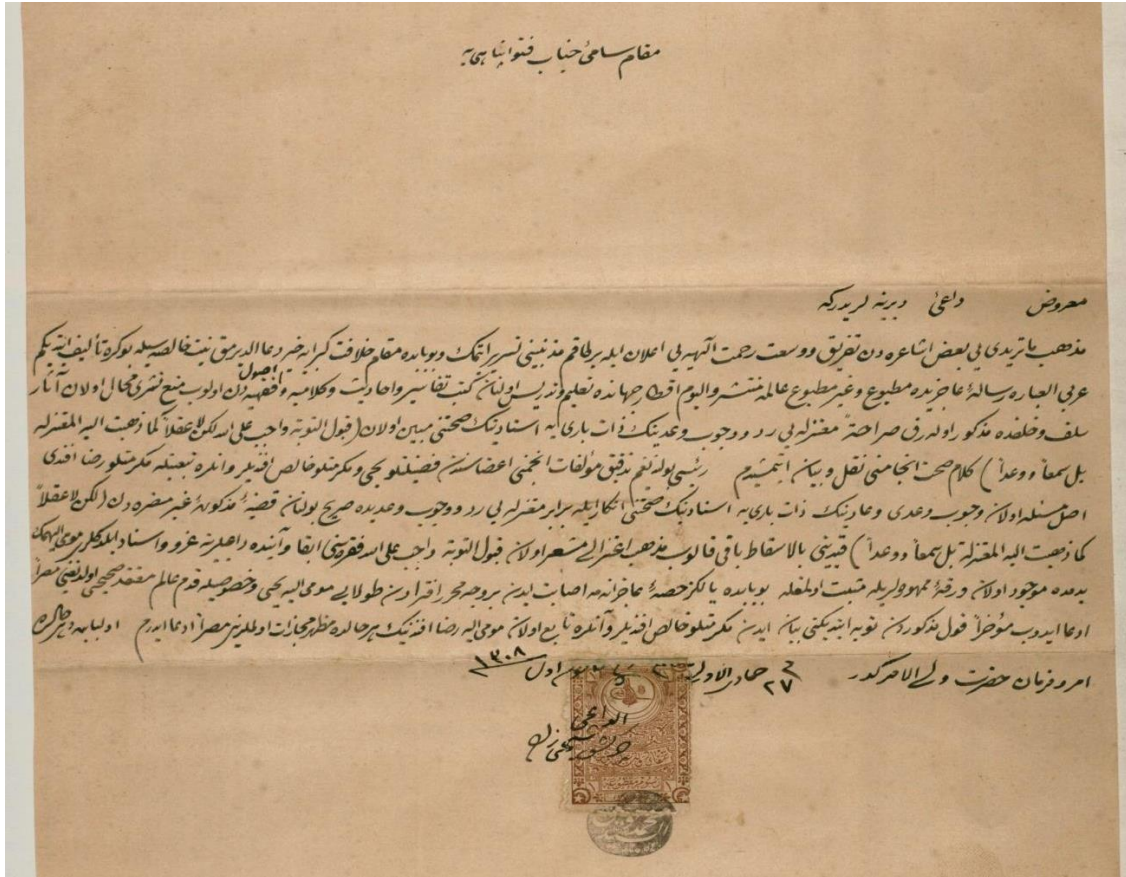 مقام سامئ جناب فتواپناهی یه
معروض داعئ دیرینه لریدركه
مذهب ماتریدی یی بعض اشاعره دن تفریق ووسعت رحمت الهیه یی اعلان ایله برطاقم مذنبینی تسریر ایتمك وبوبابده مقام خلافت كبرایه خیر دعا الدیرمق نیت خالصه سیله بوكره تألیف ایتدیكم
عربی العباره رسالۀ عاجزیده مطبوع وغیر مطبوع عالمه منتشر والیوم اقطار جهانده تعلیم وتدریس اولنان كتب تفاسیر واحادیث وكلامیه واصول فقهیه دن اولوب منع نشری محال اولان آثار
سلف وخلفده مذكور اوله رق صراحةً معتزله یی رد ووجوب وعدینك ذات باری یه اسنادینك صحتنی مبین اولان (قبول التوبة واجب علی الله لكن لا عقلاً كما ذهبت الیه المعتزله
بل سمعاً ووعداً) كلام صحت انجامنی نقل وبیان ایتمشیدم رئیسی بولندیغم تدقیق مؤلفات انجمنی اعضاسندن فضیلتلو یحیی ومكرمتلو خالص افندیلر وانلره تبعیتله مكرمتلو رضا افندی
اصل مسئله اولان وجوب وعدی وعادینك ذات باری یه اسنادینك صحتنی انكار ایله برابر معتزله یی رد ووجوب وعدیده صریح بولنان قضیۀ مذكورۀ غیر مضره دن (لكن لا عقلاً
كما ذهبت الیه المعتزلة بل سمعاً ووعداً) قیدینی بالاسقاط باقی قالوب مذهب اعتزالی مشعر اولان قبول التوبة واجب علی الله فقره سنی ابقا وآنیده داعیلرینه عزو واسناد ایلدكلری مومی الیهمك
یدمده موجود اولان ورقۀ ممهوره لریله مثبت اولمغله بوبابده یالكز حصۀ عاجزانه مه اصابت ایدن بروجه محرر افترادن طولایی مومی الیه یحیی وخصوصیله قدم عالم معتقد صحیحی اولدیغنی مصراً
ادعا ایدوب مؤخراً قول مذكوردن توبه ایتدیكنی بیان ایدن مكرمتلو خالص افندیلر وآنلره تابع اولان مومی الیه رضا افندینك هر حالده مظهر مجازات اولملرینی مصراً ادعا ایدرم اولبابده وهر حالده
امر وفرمان حضرت ولی الامركدر ٢٧ جمادی الاولی كانون اول ١٣٠٨
الداعی